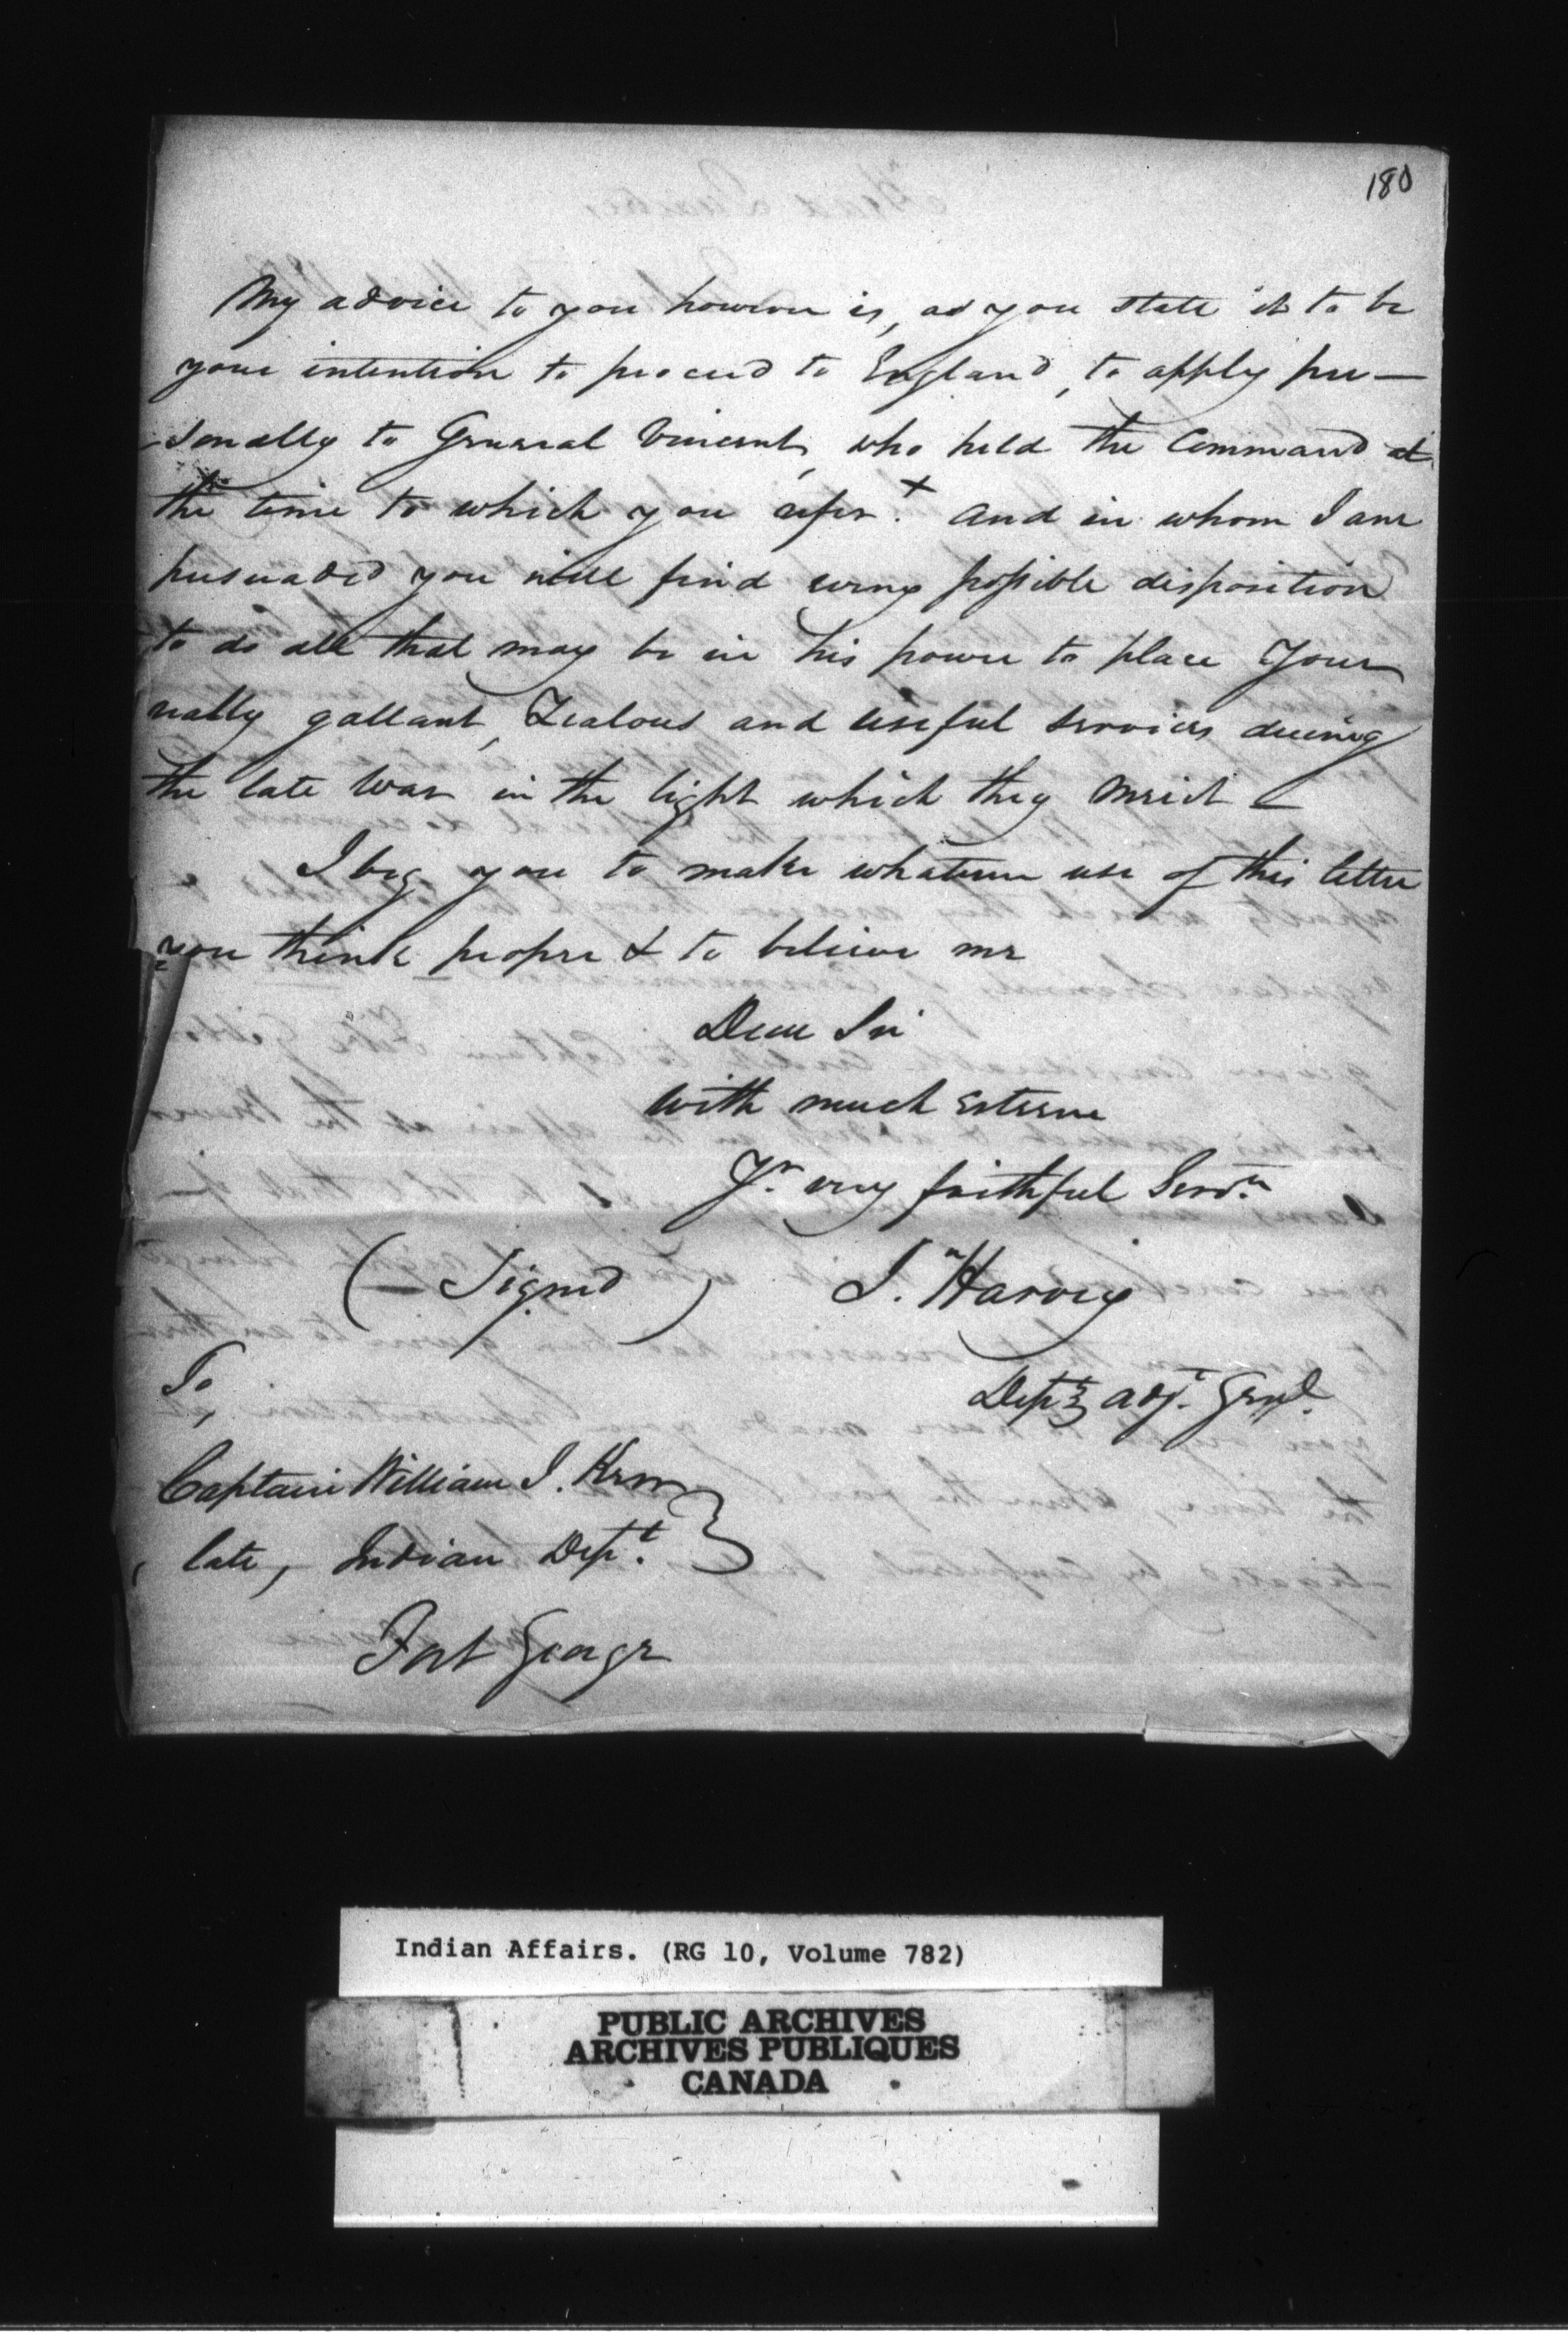 180
My advice to you however is, as you state it to be
your intention to proceed to England, to apply per—
-sonally to General Vincent, who held the Command at
the time to which you refer. + and in whom I am
persuaded you will find every possible disposition
to do all that may be in his power to place Your
really gallant, Zealous and useful services during
the late War in the light which they Merit —
I beg you to make whatever use of this letter
you think proper & to believe me
Dear Sir
with much Esteem
Yr. very faithful Servt.
(Signed) Jn. Harvey
Depty. adjt. Genl.
To,
Captain William J. Kerr
late, Indian Dept.
Fort George
Indian Affairs. (RG 10, Volume 782)
PUBLIC ARCHIVES
ARCHIVES PUBLIQUES
CANADA